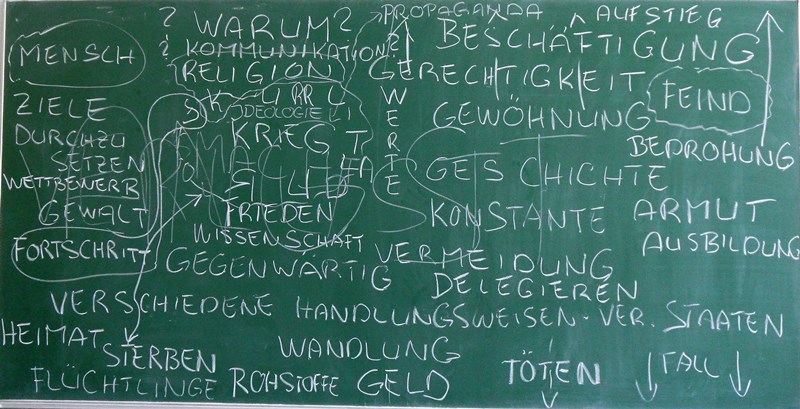 ? WARUM? PROPAGANDA AUFSTIEG
MENSCH ? KOMMUNIKATION BESCHÄFTIGUNG
RELIGION GERECHTIGKEIT FEIND
ZIELE WERTE GEWÖHNUNG
IDEOLOGIE
DURCHZU KRIEG BEDROHUNG
SETZEN GESCHICHTE
WETTBEWERB
GEWALT FRIEDEN KONSTANTE ARMUT
FORTSCHRITT WISSENSCHAFT AUSBILDUNG
GEGENWÄRTIG VERMEIDUNG
DELEGIEREN
VERSCHIEDENE HANDLUNGSWEISEN - VER. STAATEN
HEIMAT STERBEN WANDLUNG TÖTEN FALL
FLÜCHTLINGE ROHSTOFFE GELD